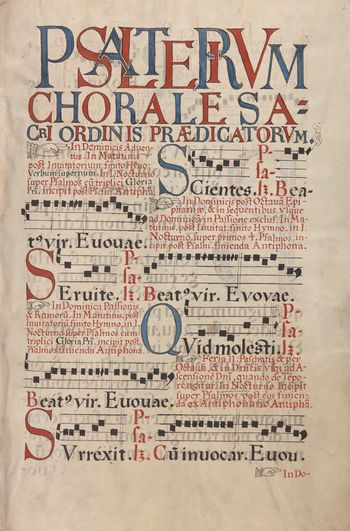 PSALTERIVM
CHORALE SA-
CRI ORDINIS PRÆDICATORVM.
In Dominicis Adven-
tus. In Matutinis
post Inuitatorium, finito Hymno
Verbum supernum. In I. Nocturno
super Psalmos cū triplici Gloria
Pri. incipit post Psalm. Antiphana.
SCientes. Psa-lꝫ. Bea-
In Dominicis post Octava Epi-
phaniæ, & in sequentibus, Vsque
ad Dominicā in Passione exclus. In Ma-
tutinis, post Inuitat. finito Hymno, in I.
Nocturno super primos 4. Psalmos, in-
cipit post Psalm. sinienda Antiphona.
tꝰ vir. Euouae.
SEruite. Psa-lꝫ. Beatꝰ vir. Evovae.
In Dominica Passionis,
& Ramorū. In Matutinis, post
Inuitatoriū finito Hymno, in I.
Nocturno super Psalmos cum
triplici Gloria Pri. incipit post
Psalmos finienda Antiphona.
QVid molesti. Psa-lꝫ.
Feria II. Paschatis & per
Octavā, & in Dnicis vsq; ad As-
censionē Dni, quando de Tēpo-
re
Nocturno. Incipit
super Psalmos, post eos finien-
da ex Antiphonario Antipha.
Beatꝰ vir. Euouae.
SVrrexit. Psa-lꝫ. Cū inuocar. Euou.
In Do-